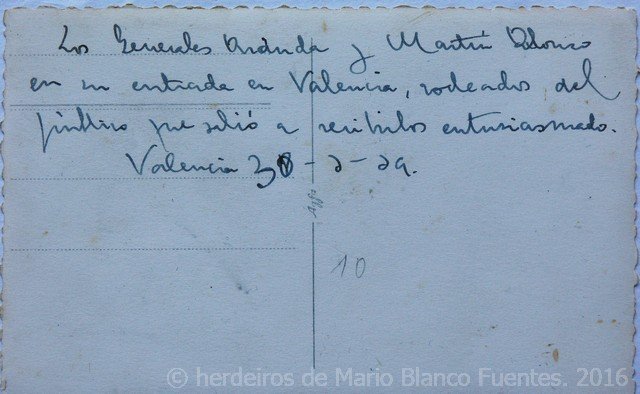 Los Generales Aranda y Martín Alonso
en su entrada en Valencia, rodeados del
público que salió a recibirlos entusiasmado.
Valencia 30-3-39.
Agfa
10
© herdeiros de Mario Blanco Fuentes. 2016